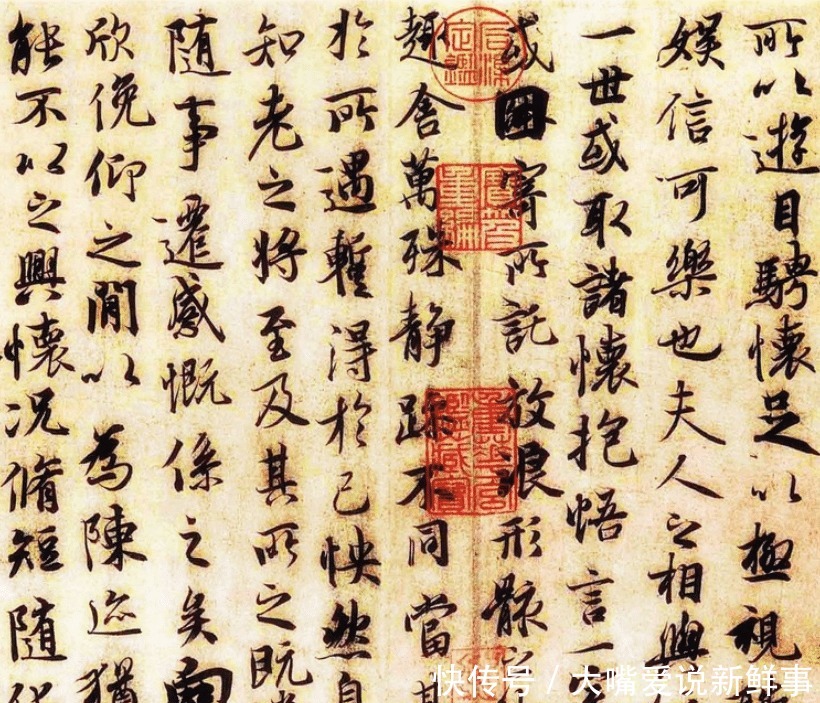 所以遊目騁懷足以極視
娛信可樂也夫人之相與
一世或取諸懷抱悟言一
或因寄所託放浪形骸
趣舍萬殊静躁不同當其
於所遇蹔得於己怏然自
知老之將至及其所之既
随事遷感慨係之矣向
欣俛仰之閒以為陳迹猶
能不以之興懷況脩短随化
快传号 / 大嘴爱说新鲜事